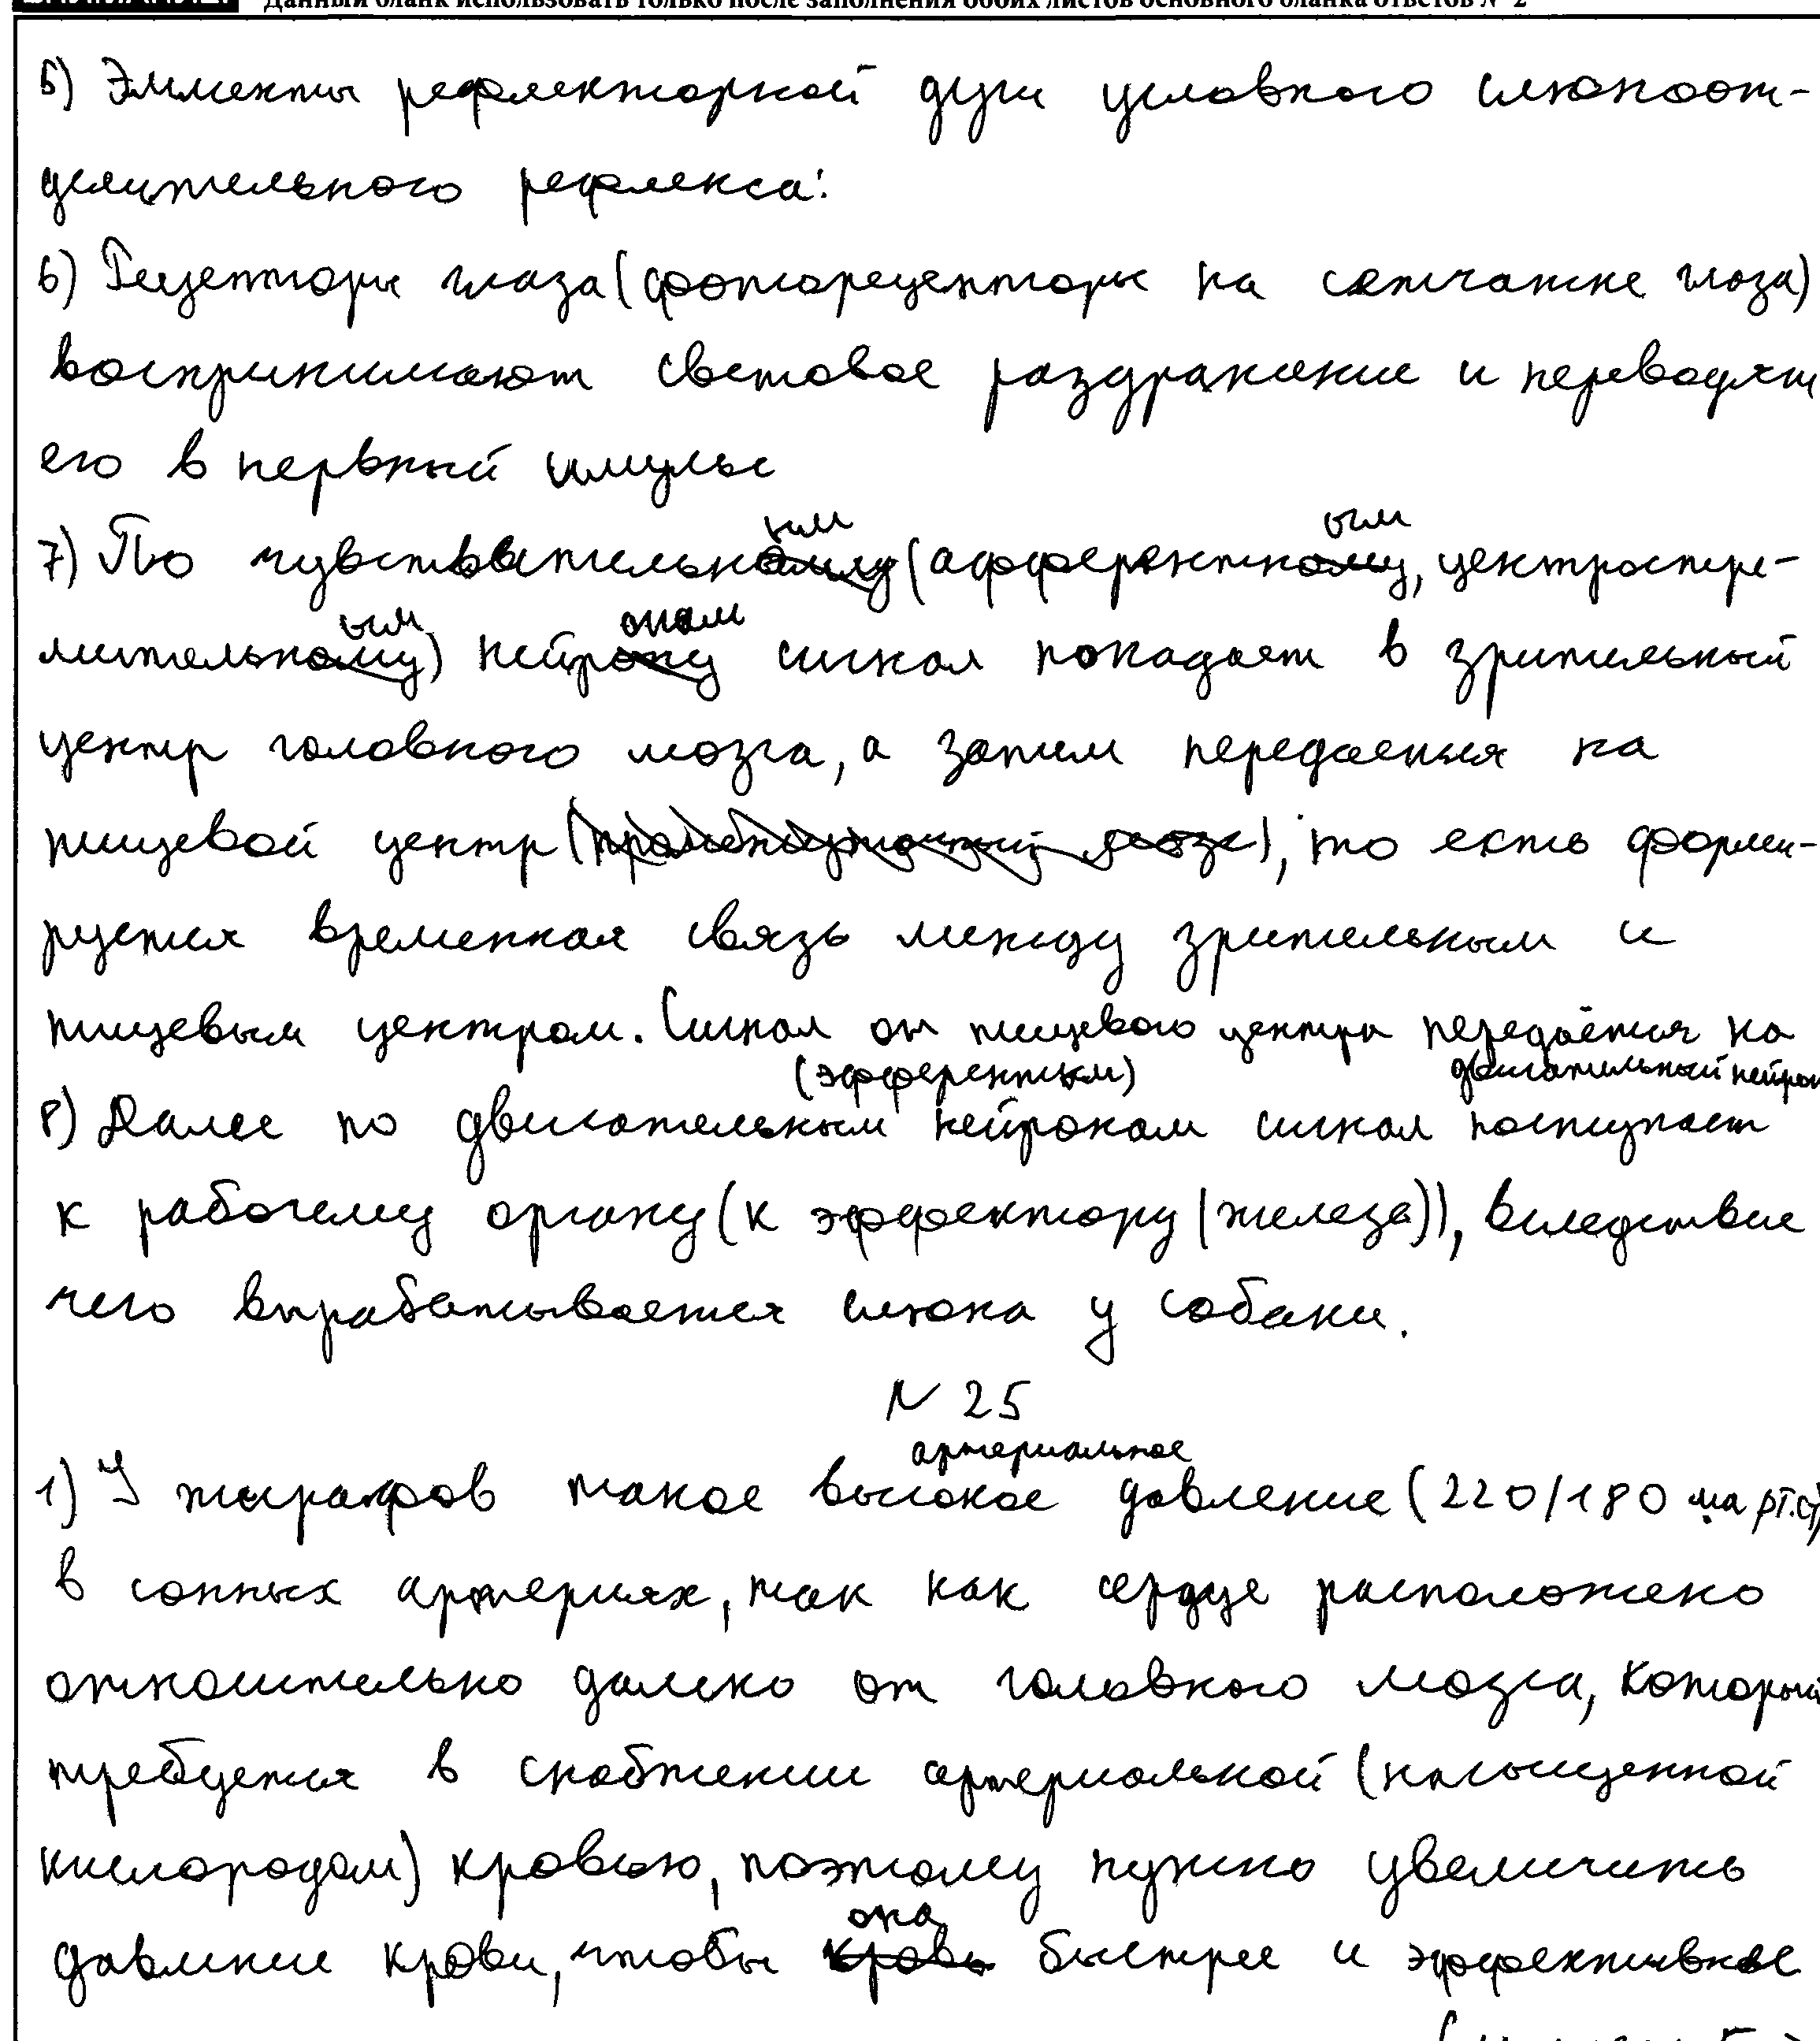 Данный бланк использовать только после заполнения обоих листов основного бланка ответов № 2
5) Элементы рефлекторной дуги условного слюноот-
делительного рефлекса:
6) Рецепторы глаза (фоторецепторы на сетчатке глаза)
воспринимают световое раздражение и переводят
его в нервный импульс
7) По чувствительным (афферентным, центростре-
мительным) нейронам сигнал попадает в зрительный
центр головного мозга, а затем передается на
пищевой центр (промежуточный мозг), то есть форми-
руется временная связь между зрительным и
пищевым центром. Сигнал от пищевого центра передаётся на
двигательный нейрон
8) Далее по двигательным (эфферентным) нейронам сигнал поступает
к рабочему органу (к эффектору (железа)), вследствие
чего вырабатывается слюна у собаки.
N 25
1) У жирафов такое высокое артериальное давление (220/180 мм рт.ст)
в сонных артериях, так как сердце расположено
относительно далеко от головного мозга, который
требуется в снабжении артериальной (насыщенной
кислородом) кровью, поэтому нужно увеличить
давление крови, чтобы она быстрее и эффективнее